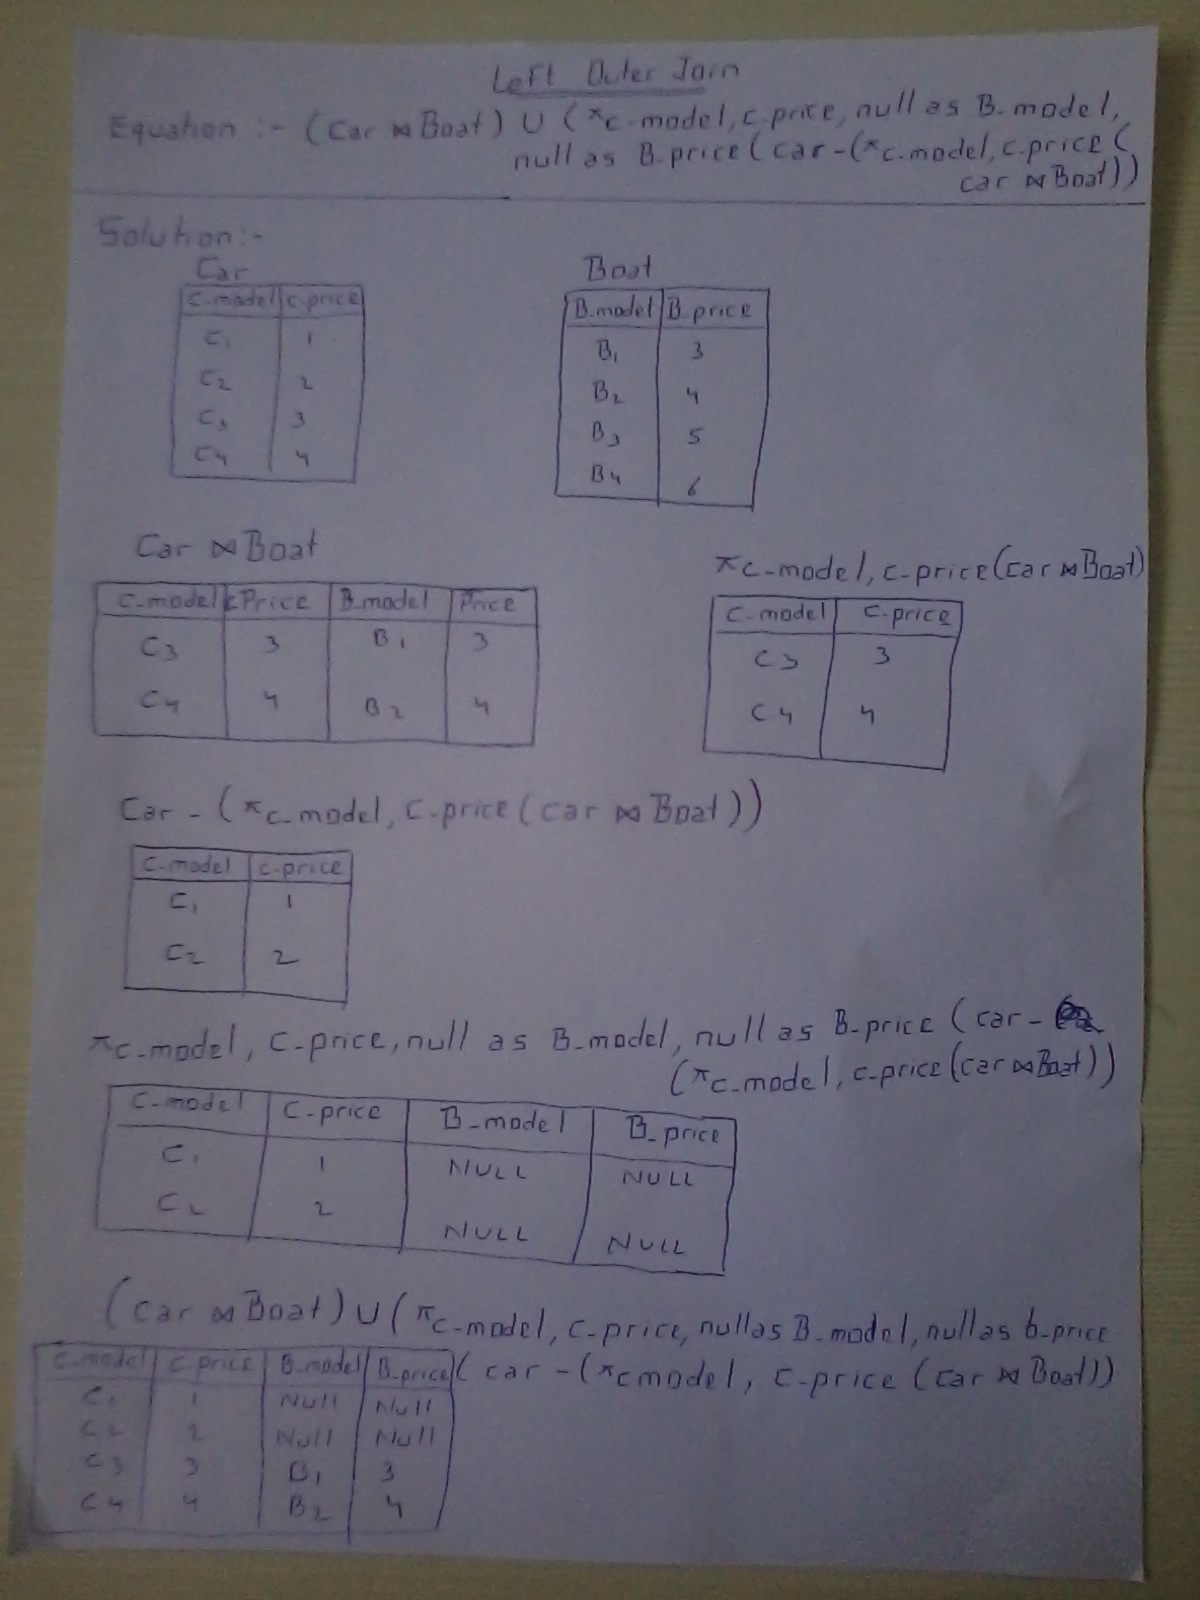 Left Outer Join
Equation :- (Car ⋈ Boat) ∪ (π c-model, c-price, null as B-model,
null as B-price (car - (π c-model, c-price (
car ⋈ Boat))
Solution:-
Car
C-model C-price
C1 1
C2 2
C3 3
C4 4
Boat
B-model B-price
B1 3
B2 4
B3 5
B4 6
Car ⋈ Boat
C-model C Price B-model Price
C3 3 B1 3
C4 4 B2 4
π c-model, c-price (car ⋈ Boat)
C-model C-price
C3 3
C4 4
Car - (π c-model, c-price (car ⋈ Boat))
C-model C-price
C1 1
C2 2
π c-model, c-price, null as B-model, null as B-price (car -
(π c-model, c-price (car ⋈ Boat))
C-model C-price B-model B-price
C1 1 NULL NULL
C2 2 NULL NULL
(car ⋈ Boat) ∪ (π c-model, c-price, null as B-model, null as b-price
(car - (π c model, c-price (car ⋈ Boat))
C-model C-price B-model B-price
C1 1 Null Null
C2 2 Null Null
C3 3 B1 3
C4 4 B2 4